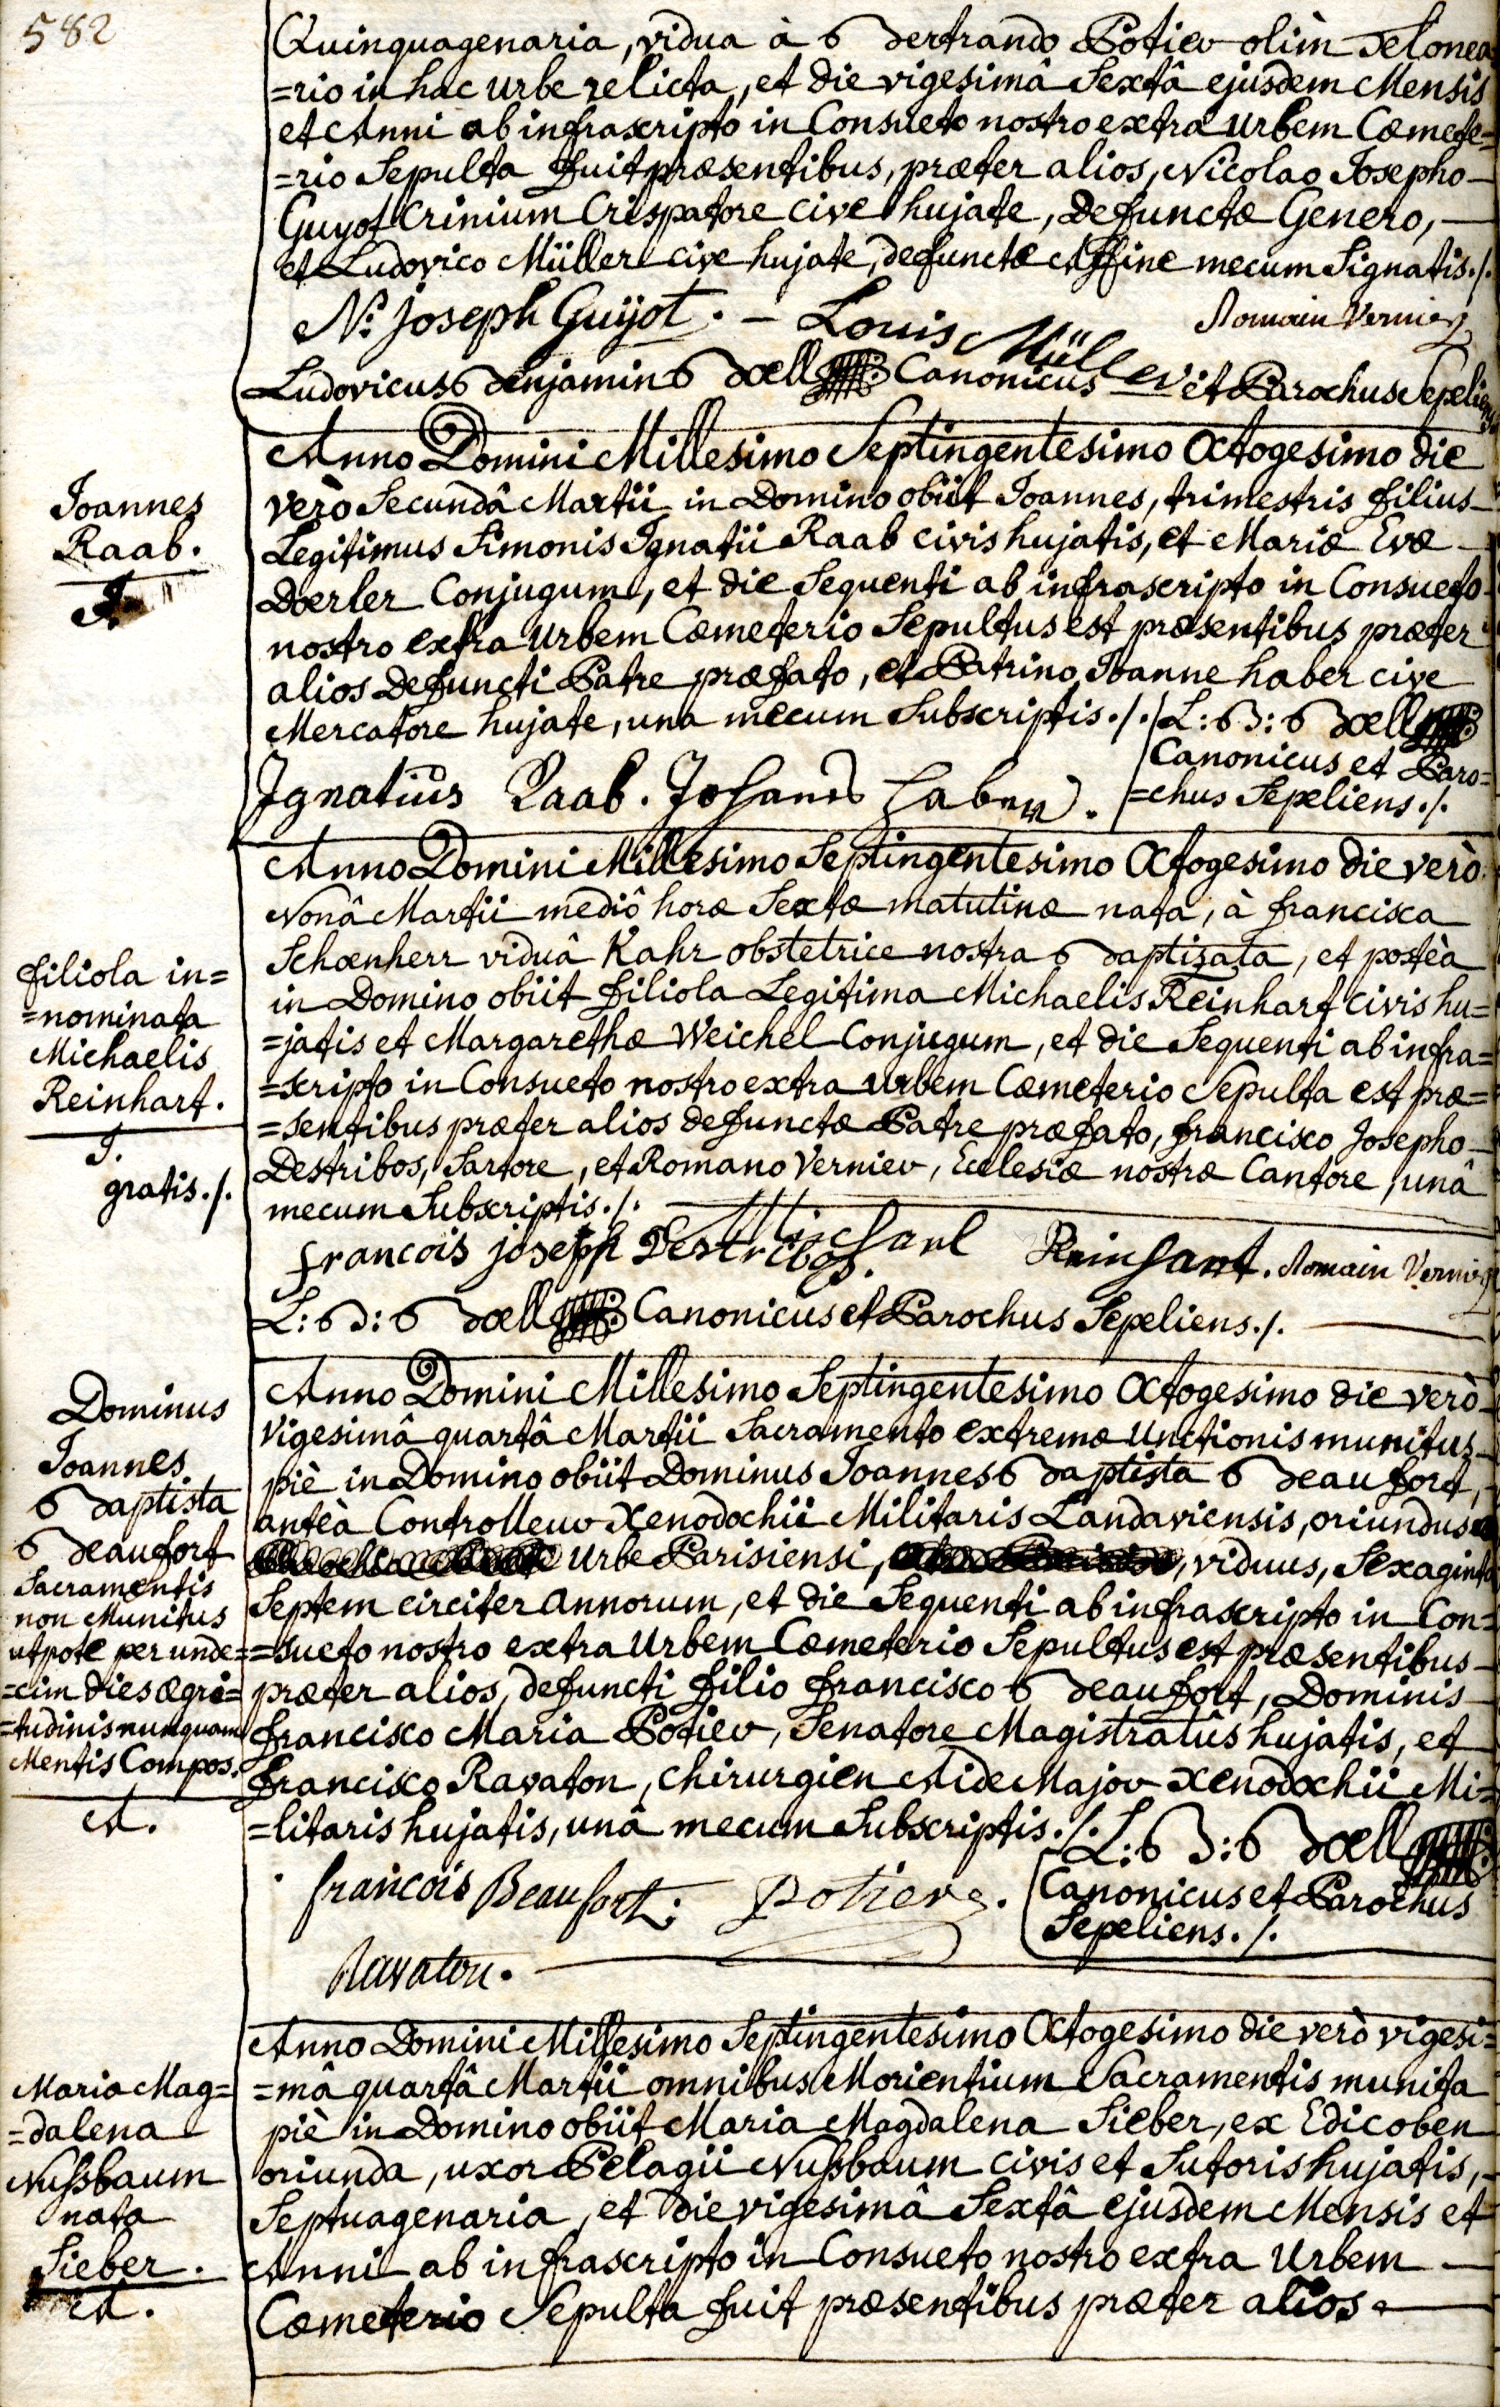 582
Quinquagenaria, vidua à Bertrando Potier olìm Telonea
=rio in hac urbe relicta, et die vigesimâ Sextâ ejusdem Mensis
et Anni ab infrascripto in Consueto nostro extra Urbem Cœmete=
=rio Sepulta fuit præsentibus, præter alios, Nicolao Josepho
Guyot Crinium Crispatore cive hujate, Defunctæ Genero,
et Ludovico Müller cive hujate, defunctæ Affine mecum Signatis./.
N: joseph Guÿot. - Louis Müller
Romain Vernier
Ludovicus Benjamin Bœll Canonicus et Parochus Sepeliens
Joannes
Raab.
J.
Anno Domini Millesimo Septingentesimo Octogesimo die
verò Secundâ Martii in Domino obiit Joannes, trimestris filius
Legitimus Simonis Ignatii Raab civis hujatis, et Mariæ Evæ
Dœrler Conjugum, et die Sequenti ab infrascripto in Consueto
nostro extra Urbem Cœmeterio Sepultus est præsentibus præter
alios Defuncti Patre præfato, et Patrino Joanne haber cive
Mercatore hujate, una mecum Subscriptis./. L: B: Bœll
Canonicus et Paro=
=chus Sepeliens./.
Ignatiüs Raab. Johanes Haber.
filiola in=
=nominata
Michaelis
Reinhart.
J.
gratis./.
Anno Domini Millesimo Septingentesimo Octogesimo die verò
Nonâ Martii mediô horæ Sextæ matutinæ nata, à francisca
Schœnherr viduâ Kahr obstetrice nostra Baptizata, et posteà
in Domino obiit filiola Legitima Michaelis Reinhart civis hu=
=jatis et Margarethæ Weichel Conjugum, et die Sequenti ab infra=
=scripto in Consueto nostro extra Urbem Cœmeterio Sepulta est præ=
=sentibus præter alios defunctæ Patre præfato, francisco Josepho
Destribos, Sartore, et Romano Vernier, Ecclesiæ nostræ Cantore, unâ
mecum Subscriptis./.
francois joseph Destribos. Michael Reinhart. Romain Vernier
L: B: Bœll Canonicus et Parochus Sepeliens./.
Dominus
Joannes
Baptista
Beaufort
Sacramentis
non Munitus
utpote per unde=
=cim dies ægri=
=tudinis nunquam
Mentis Compos.
A.
Anno Domini Millesimo Septingentesimo Octogesimo die verò
vigesimâ quartâ Martii Sacramento extremæ Unctionis munitus
piè in Domino obiit Dominus Joannes Baptista Beaufort,
anteà Controlleur Xenodochii Militaris Landaviensis, oriundus
Urbe Parisiensi, viduus, Sexaginta
Septem circiter annorum, et die Sequenti ab infrascripto in Con=
=sueto nostro extra Urbem Cœmeterio Sepultus est præsentibus
præter alios, defuncti filio francisco Beaufort, Dominis
francisco Maria Potier, Senatore Magistratûs hujatis, et
francisco Ravaton, Chirurgien Aide Major Xenodochii Mi=
=litaris hujatis, unâ mecum Subscriptis./. L: B: Bœll
Canonicus et Parochus
Sepeliens./.
francois Beaufort. Potier.
Ravaton.
Maria Mag=
=dalena
Nußbaum
nata
Sieber.
A.
Anno Domini Millesimo Septingentesimo Octogesimo die verò vigesi=
=mâ quartâ Martii omnibus Morientium Sacramentis munita
piè in Domino obiit Maria Magdalena Sieber, ex Edicoben
oriunda, uxor Pelagii Nußbaum civis et Sutoris hujatis,
Septuagenaria, et die vigesimâ Sextâ ejusdem Mensis et
Anni ab infrascripto in Consueto nostro extra Urbem
Cœmeterio Sepulta fuit præsentibus præter alios